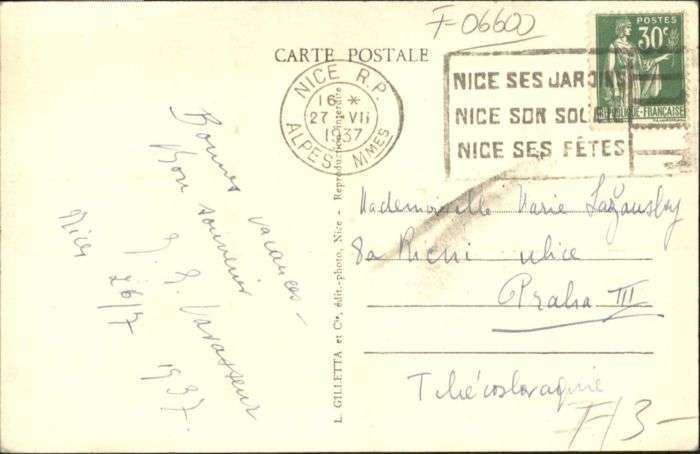 F-06600
CARTE POSTALE
POSTES
30c
RÉPUBLIQUE-FRANÇAISE
NICE R.P.
16 *
27 VII
1937
ALPES MMES
NICE SES JARDINS
NICE SON SOLEIL
NICE SES FÊTES
Bonnes vacances -
Bon souvenir
Vavasseur
Nice, 26/7 1937.
L. GILLETTA et Cie, édit.-photo, Nice - Reproduction interdite
Mademoiselle Marie Lažansky
8a Říční ulice
Praha III
Tchécoslovaquie
F/3-